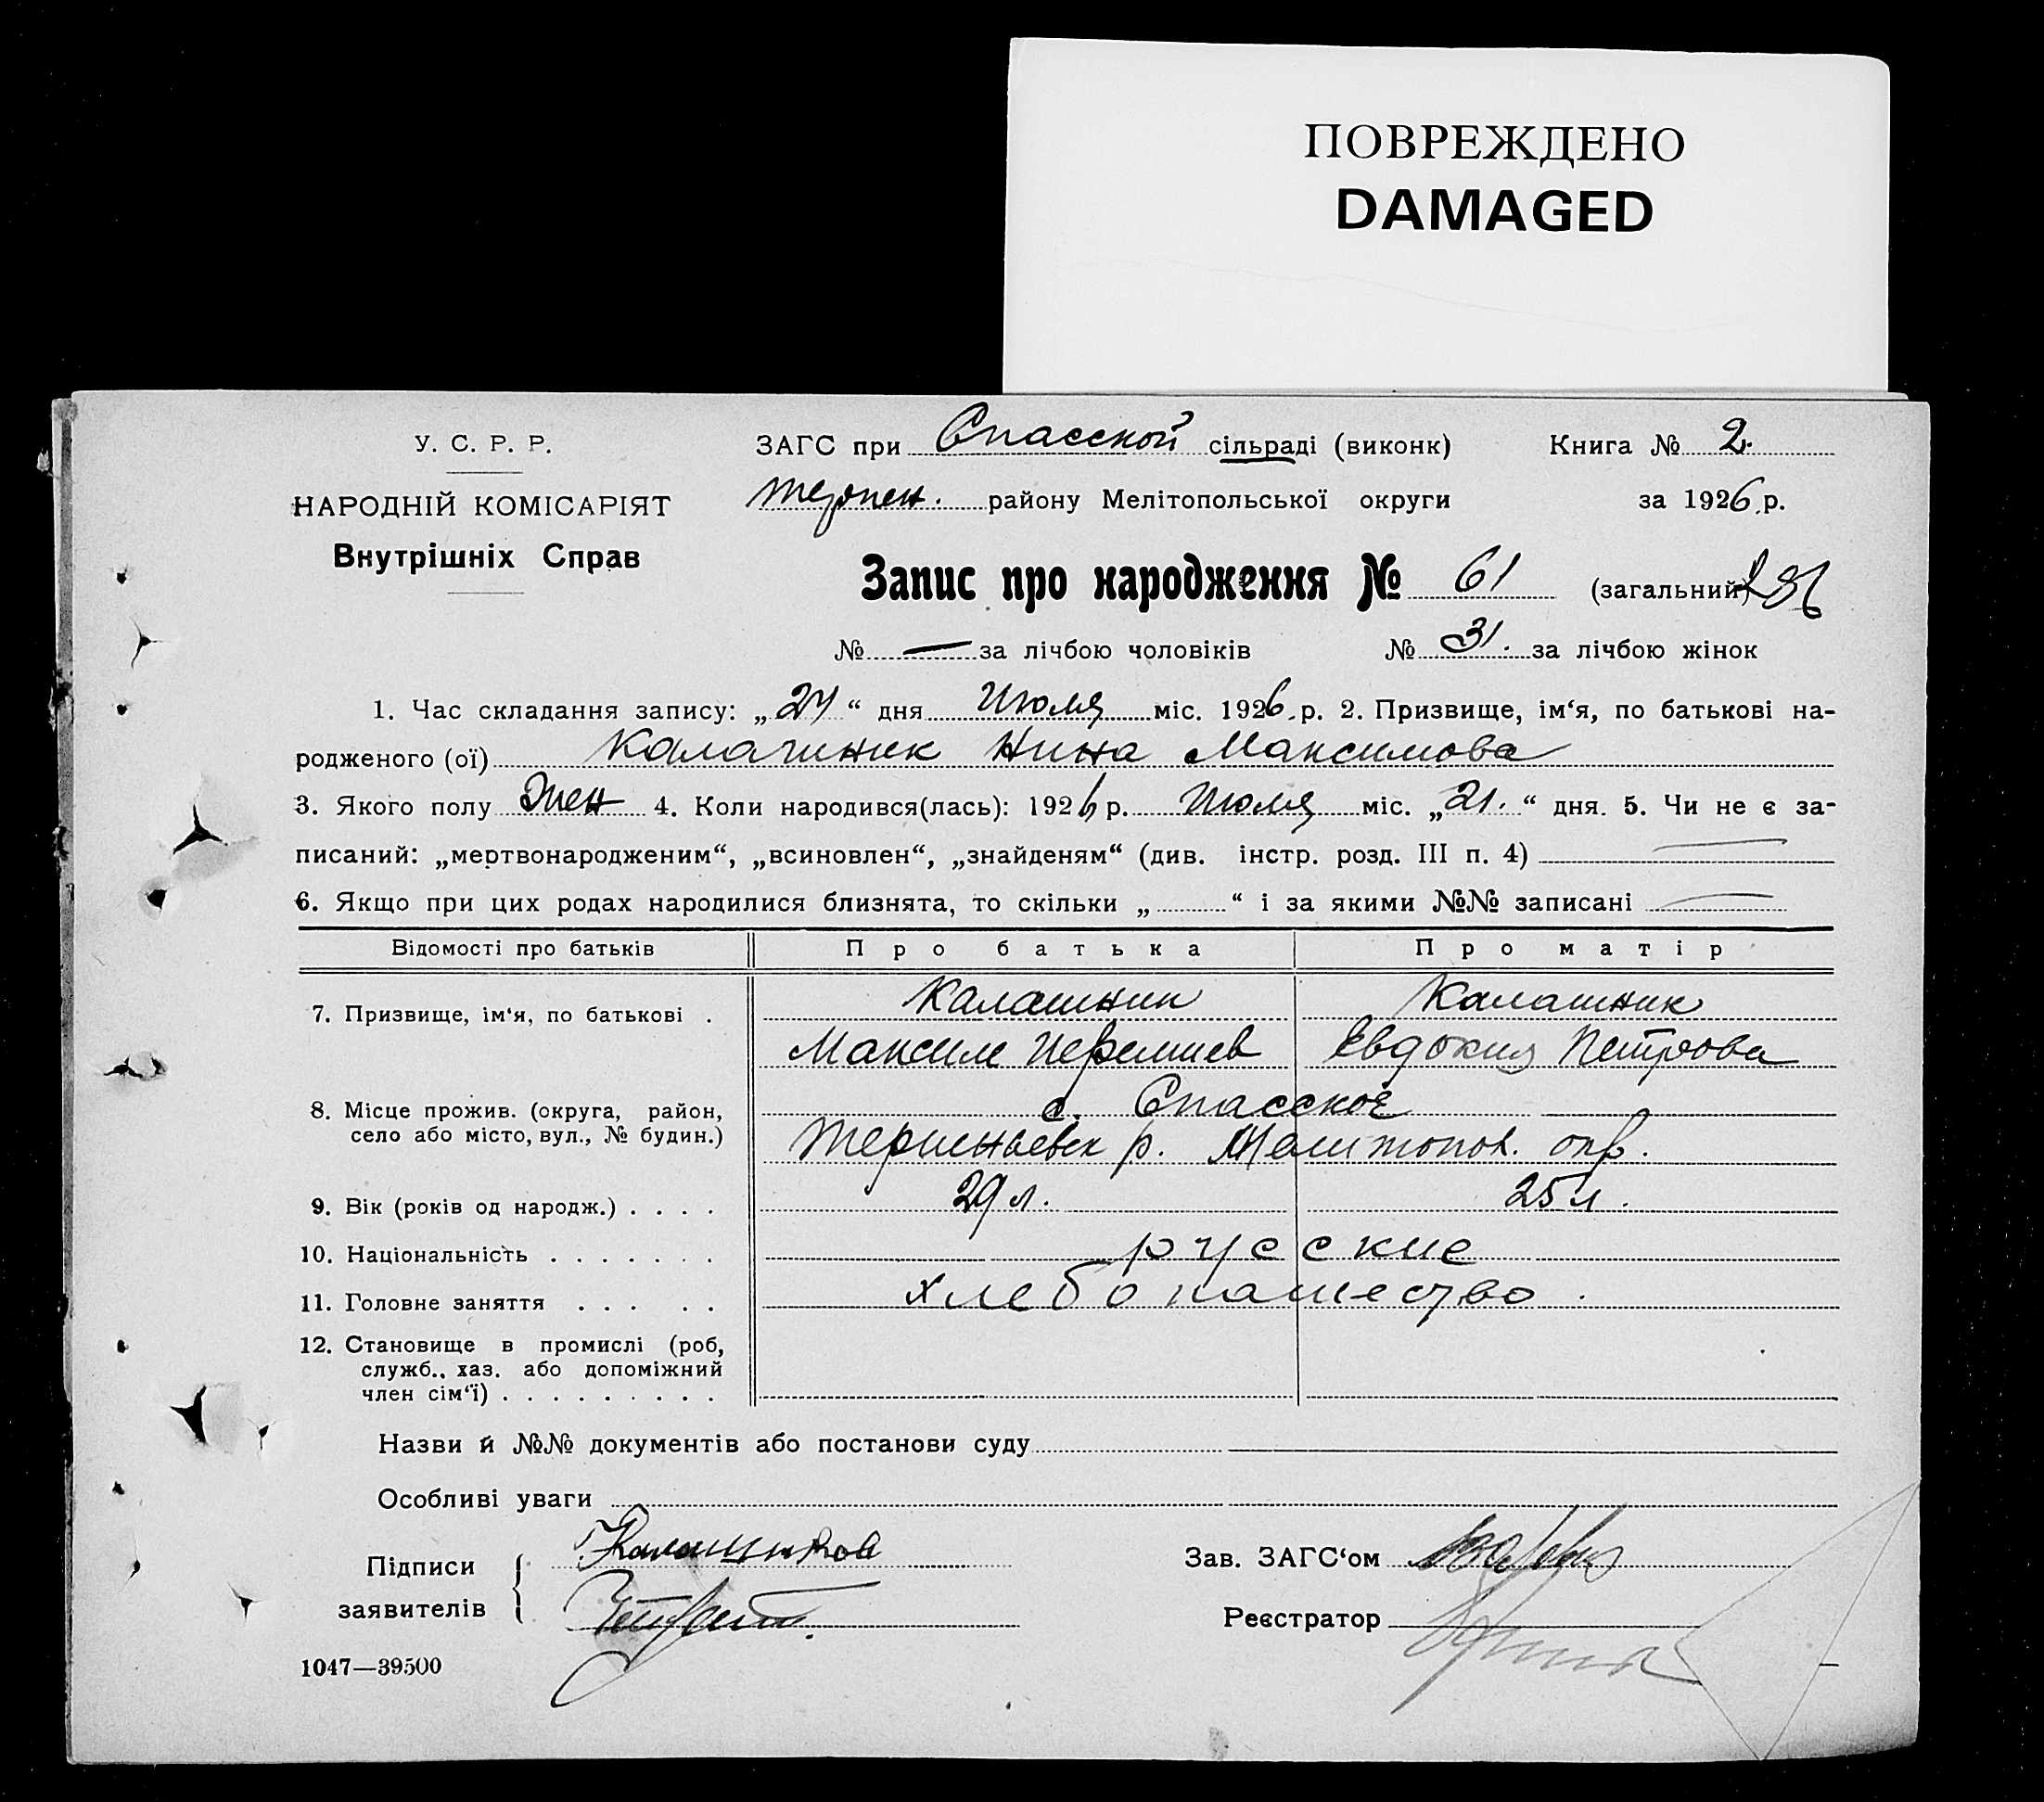 ПОВРЕЖДЕНО
DAMAGED
У. С. Р. Р.
НАРОДНІЙ КОМІСАРІЯТ
Внутрішніх Справ
ЗАГС при Спасской сільраді (виконк) Книга № 2.
Терпен. району Мелітопольської округи за 1926 р.
Запис про народження № 61 (загальний)
№ — за лічбою чоловіків № 31. за лічбою жінок
1. Час складання запису: „24“ дня Июля міс. 1926 р. 2. Призвище, ім‘я, по батькові на-
родженого (ої) Калашник Нина Максимова
3. Якого полу Жен 4. Коли народився(лась): 1926 р. Июля міс. „21.“ дня. 5. Чи не є за-
писаний: „мертвонародженим“, „всиновлен“, „знайденям“ (див. інстр. розд. III п. 4) —
6. Якщо при цих родах народилися близнята, то скільки „ “ і за якими №№ записані —
Відомості про батьків Про батька Про матір
7. Призвище, ім‘я, по батькові . Калашник Калашник
Максим Евдокия Петрова
8. Місце прожив. (округа, район, село або місто, вул., № будин.) с. Спасское
Терпеньевск р. Мелитопол. окр.
9. Вік (років од народж.) . . . . 29 л. 25 л.
10. Національність . . . . . . . русские
11. Головне заняття . . . . . хлебопашество.
12. Становище в промислі (роб,
служб., хаз. або допоміжний
член сім‘ї) . . . . . . . . .
Назви й №№ документів або постанови суду
Особливі уваги
Підписи
заявителів
Калашников
Зав. ЗАГС‘ом
Реєстратор
1047—39500